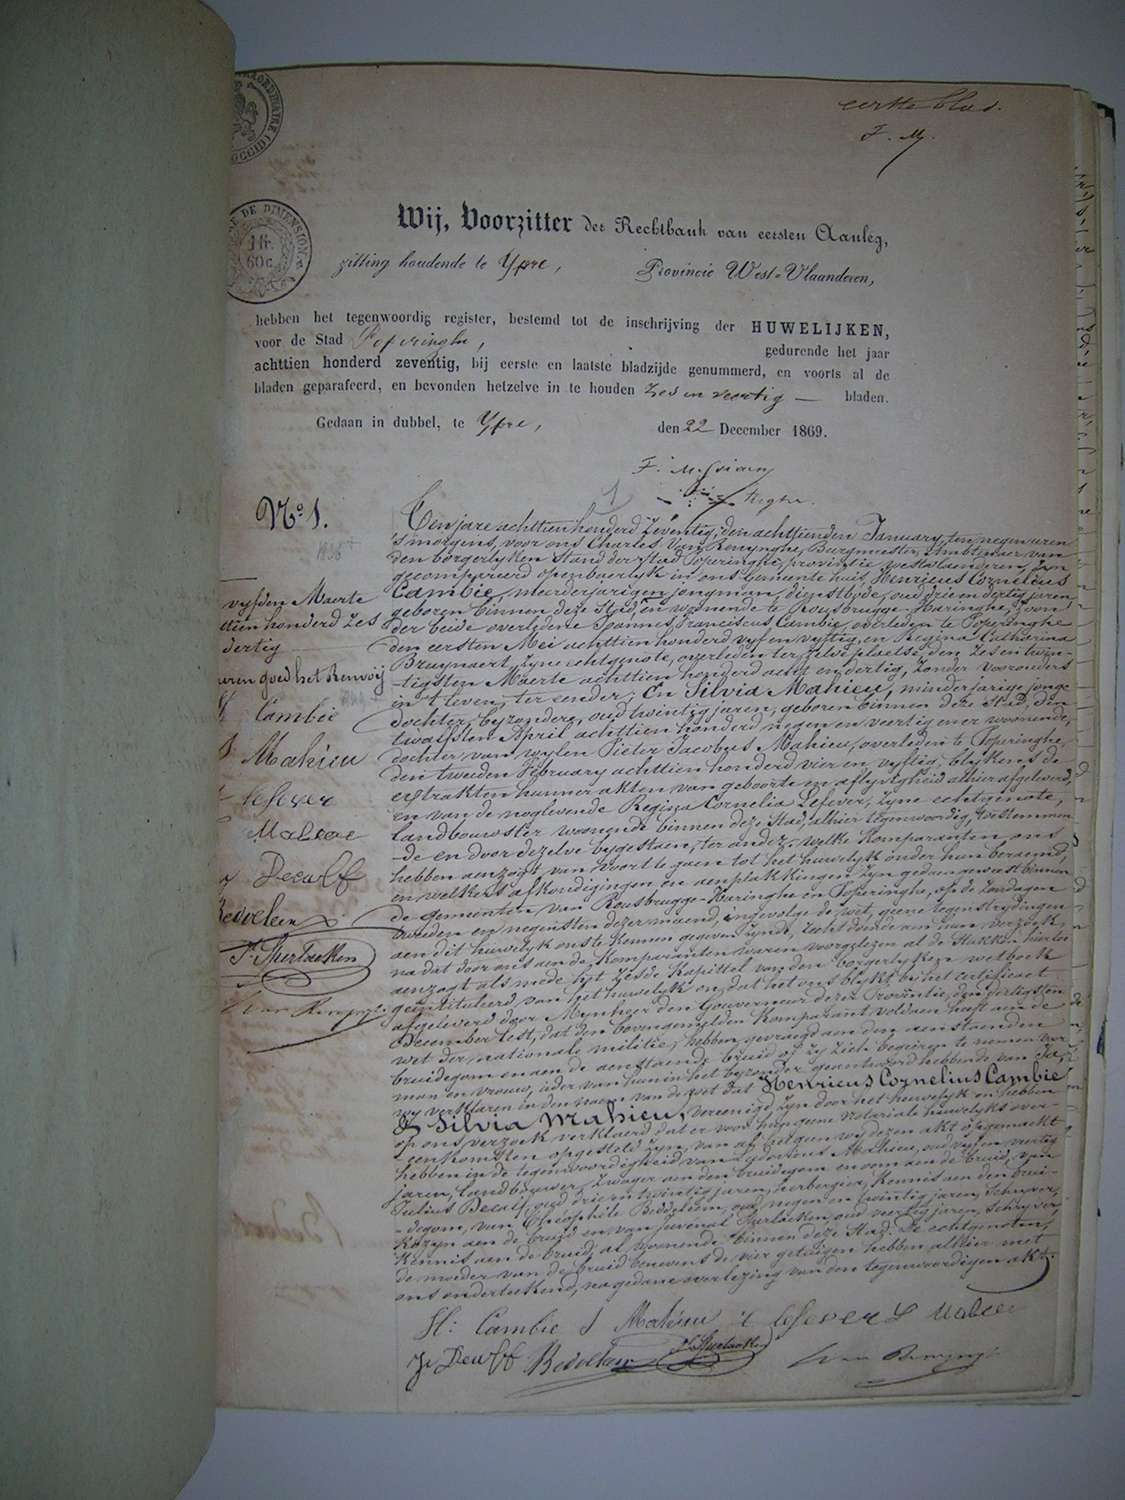 eerste blad.
F. M.
DE DIMENSION
1 fr.
60 c.
Wij, Voorzitter der Rechtbank van eersten Aanleg,
zitting houdende te Ypre, Provincie West-Vlaanderen,
hebben het tegenwoordig register, bestemd tot de inschrijving der HUWELIJKEN,
voor de Stad Poperinghe, gedurende het jaar
achttien honderd zeventig, bij eerste en laatste bladzijde genummerd, en voorts al de
bladen geparafeerd, en bevonden hetzelve in te houden zes en veertig — bladen.
Gedaan in dubbel, te Ypre, den 22 December 1869.
No. 1.
Ten jare achttien honderd zeventig, den achttienden January, ten negen uren
's morgens, voor ons Charles Van Renynghe, Burgmeester, Ambtenaer van
den borgerlyken Stand der stad Poperinghe, provintie westvlaenderen, zyn
gecompareerd openbaerlyk in ons Gemeente huis, Henricus Cornelius
Cambie, meerderjarigen jongman, dienstbode, oud drie en dertig jaren,
geboren binnen deze Stad, en wonende te Rousbrugge-Haringhe, zoon
der beide overledene Joannes Franciscus Cambie, overleden te Poperinghe
den eersten Mei achttien honderd vyf en vyftig, en Regina Catharina
Bruynaert, zyne echtgenote, overleden ter zelve plaetse, den zes en twin-
tigsten Maerte achttien honderd acht en dertig, zonder voorouders
in 't leven, ter eender; En Silvia Mahieu, minderjarige jonge
dochter, byzondere, oud twintig jaren, geboren binnen deze Stad, den
twaelfsten April achttien honderd negen en veertig en er woonende,
dochter van wylen Pieter Jacobus Mahieu, overleden te Poperinghe
den tweeden February achttien honderd vier en vyftig, blykens de
extrakten hunner akten van geboorte en aflyvigheid alhier afgeleverd,
en van de noglevende Regina Cornelia Lefever, zyne echtgenote,
Landbouwster woonende binnen deze Stad, alhier tegenwoordig, toestemmen-
de en door dezelve bygestaen, ter ander; welke Komparanten ons
hebben aenzogt van voort te gaen tot het huwelyk onder hun beraemd,
en welkers afkondigingen en aenplakkingen zyn gedaen geweest binnen
de gemeenten van Rousbrugge-Haringhe en Poperinghe, op de zondagen
tweeden en negensten dezer maend, ingevolge de wet, geene tegenstrydingen
aen dit huwelyk ons te kennen gegeven zynde, recht doende aen hun verzoek,
na dat door ons aen de Komparanten waren voorgelezen al de stukken hierbo
aenzogt als mede het zesde Kapittel van den borgerlyken wetboek
geintituleerd van het huwelyk en, dat het ons blykt by het certificaet
afgeleverd door Mynheer den Gouverneur dezer Provintie, den dertigsten
December lest, dat den bovengemelden Komparant voldaen heeft aen de
wet der nationale militie, hebben gevraegd aen den aenstaenden
bruidegom en aen de aenstaende bruid of zy zich begeiren te nemen voor
man en vrouw, ieder van hun in het byzonder geantwoord hebbende van Ja,
wy verklaren in den naem van de wet dat Henricus Cornelius Cambie
& Silvia Mahieu, vereenigd zyn door het huwelyk en hebben
op ons verzoek verklaerd dat er voor hun geene notariale huwelyks over-
eenkomsten opgesteld zyn, van al hetgeen wy dezen akt opgemaekt
hebben in de tegenwoordigheid van Lydovicus Mahieu, oud vyf en veertig
jaren, Landbouwer, zwager aen den bruidegom en oom aen de bruid, van
Julius Decuf, oud drie en twintig jaren, herbergier, Kennis aen den brui-
degom, van Théophile Beddeleem, oud negen en twintig jaren, Schryver,
Kozyn aen de bruid en van Juvenal Spertaeken, oud veertig jaren, Schryver,
Kennis aen de bruid, al woonende binnen deze Stad. De echtgenoten,
de moeder van de bruid benevens de vier getuigen hebben alhier met
ons onderteekend, na gedane overlezing van den tegenwoordigen akt.
H: Cambie S Mahieu r lefever L Mahieu
J. Decuff
vyfden Maerte
ttien honderd zes
dertig
uren goed het Renvoij
Cambie
Mahieu
lefever
Decuff